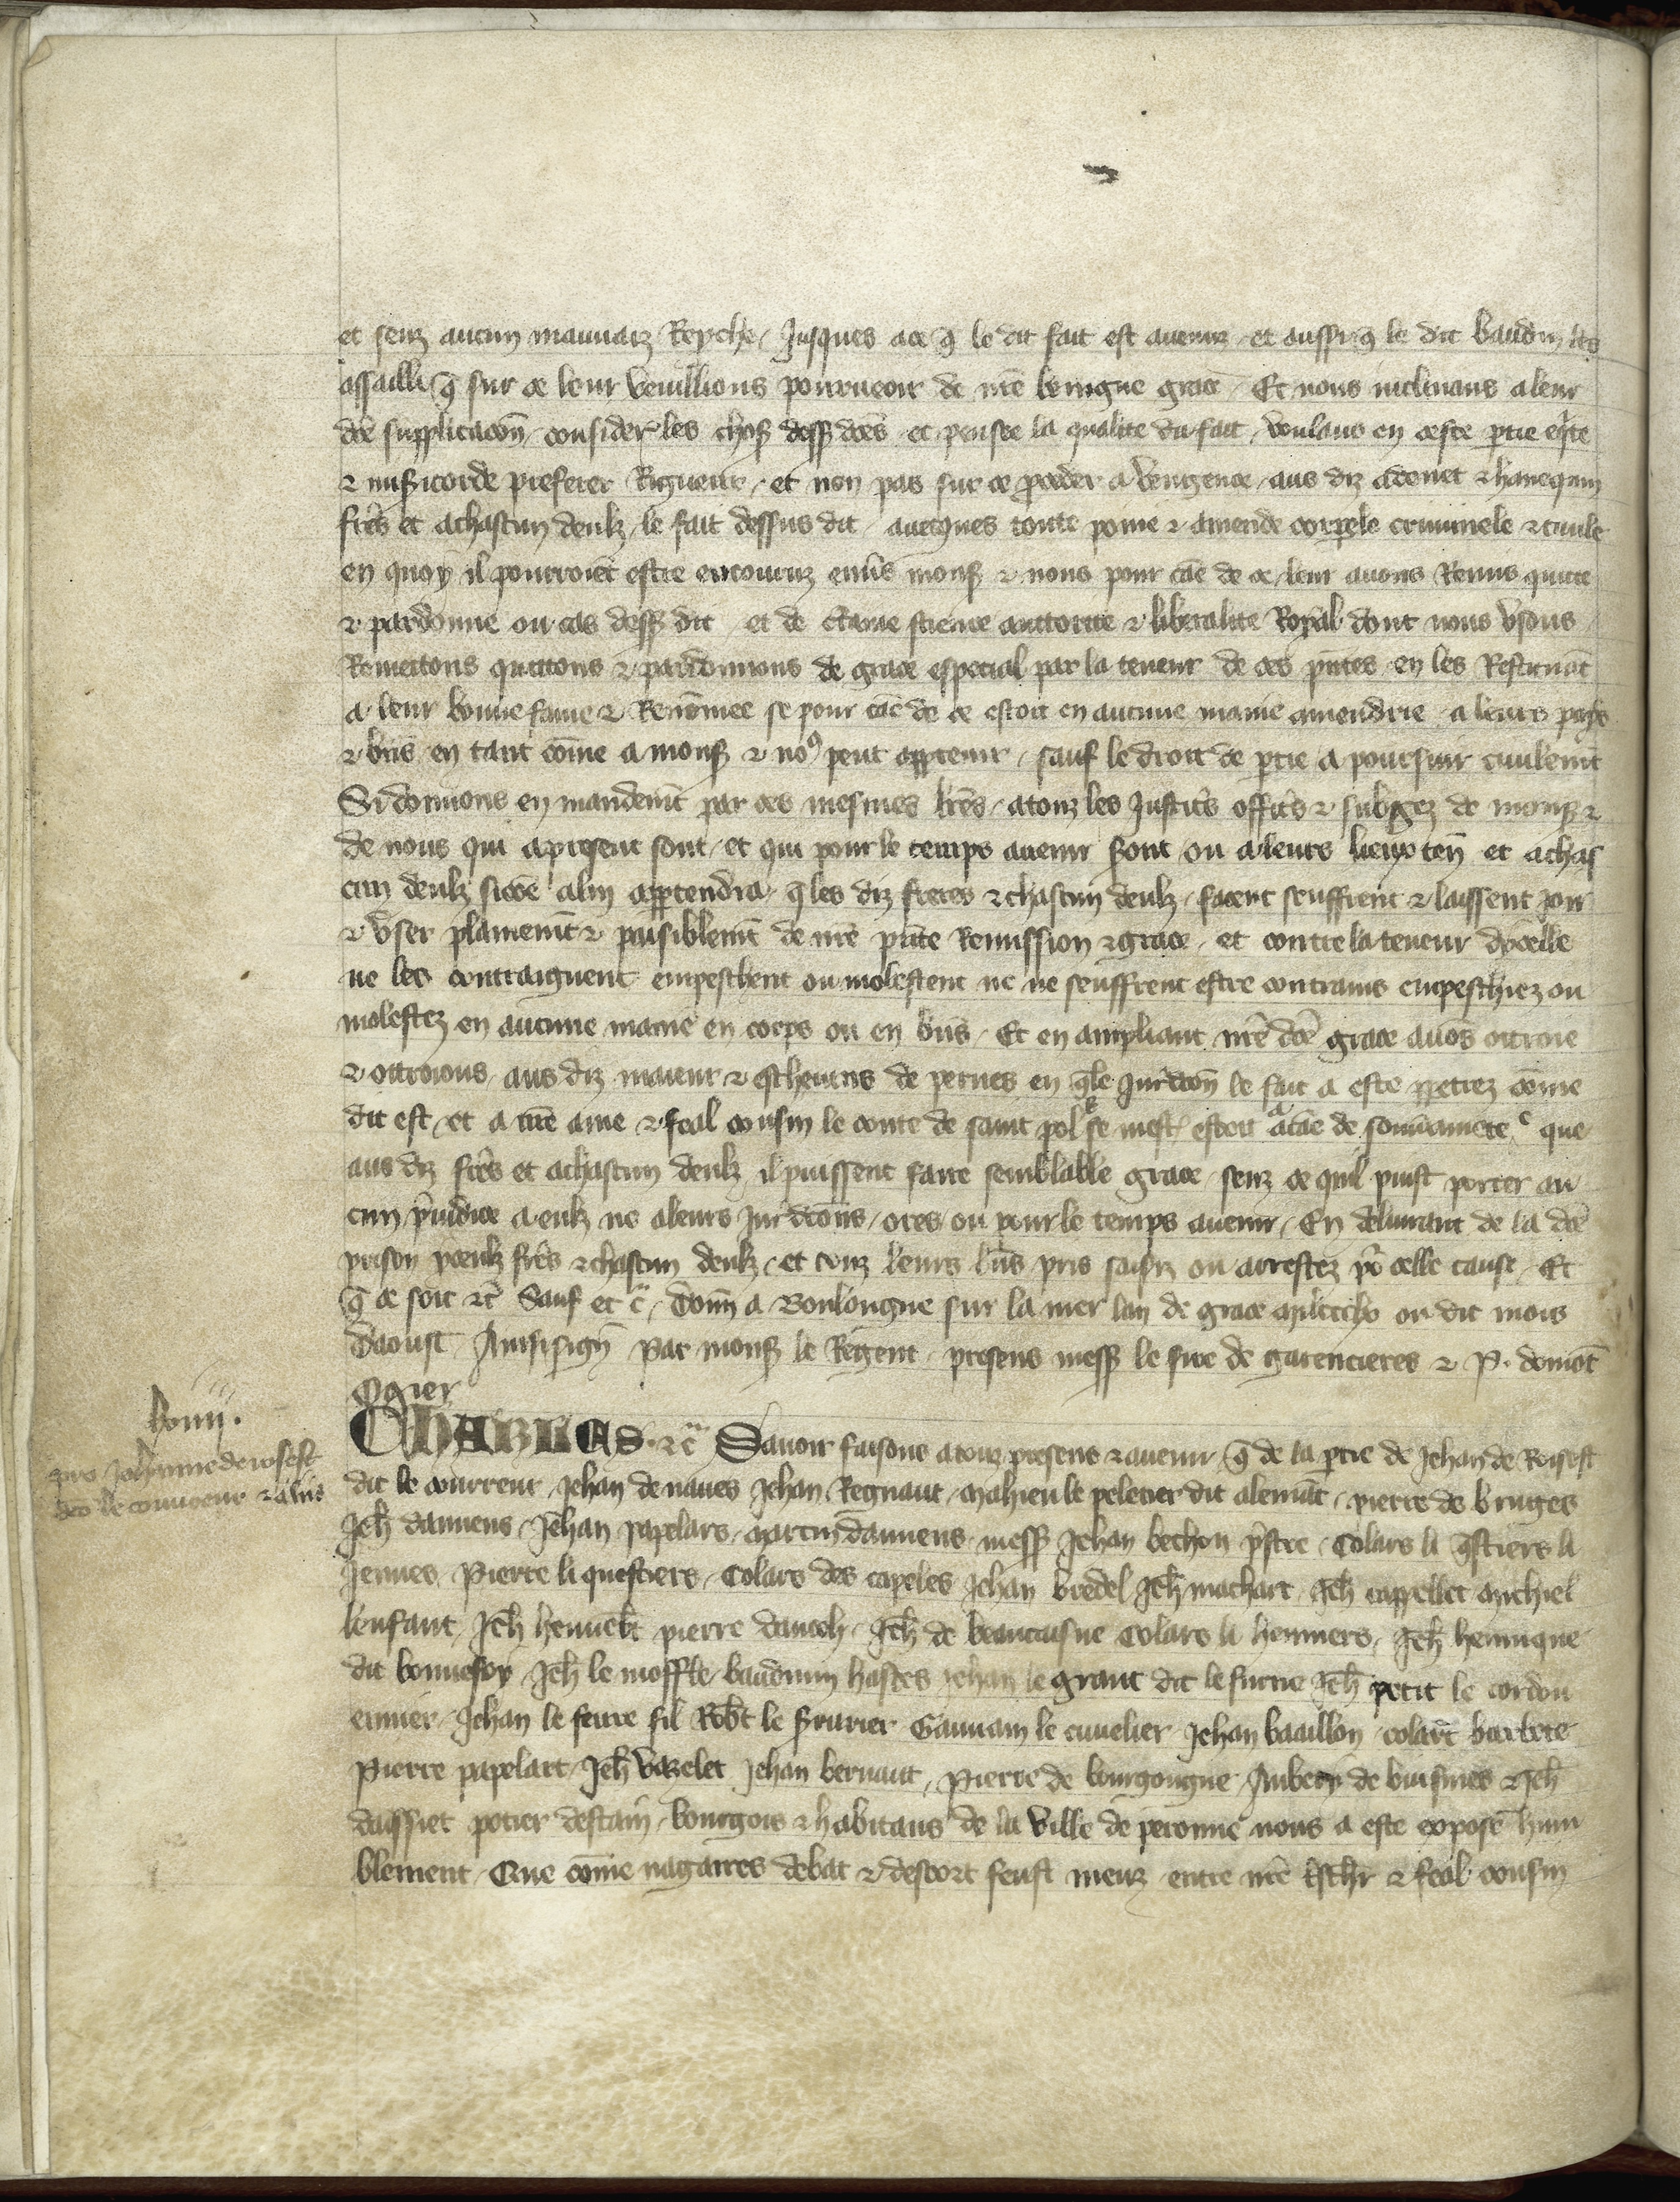 et senz aucun mauvaiz Repche / Jusques ace q̄ le dit fait est avenuz et aussi q̄ le dit baudin les
assailli q̄ sur ce leur veuillions pourveoir de nr̄e benigne grace / Et nous inclinans a leur
dc̄e supplicacōn / considere les choses dess dc̄es et pensee la qualite du fait / voulans en ceste ptie eq̄te
⁊ misicorde preferer Rigueur / et non pas sur ce pceder a vengence / aus diz adenet ⁊ hanequin
frēs et achascun deulz / le fait dessus dit / avecques toute poine ⁊ amende corpele criminele ⁊ civile
en quoy il pourroiēt estre encouruz enūs mons̄ ⁊ nous pour cāe de ce / leur avons Remis quitte
⁊ pardonne ou cas dess̄ dit / et de c̄taine science auttorite ⁊ liberalite Royal dont nous usons /
Remettons quittons ⁊ pardonnons de grace especial par la teneur de ces pn̄tes en les Restituāt
a leur bonne fame ⁊ Renōmee se pour cāe de ce estoit en aucune manie amendrie / a leurs pays
⁊ bn̄s en tant cōme a mons̄ ⁊ noꝯ peut appteñir / sauf le droit de ptie a poursuir civilemēt
Si donnons en mandemēt par ces mesmes lr̄es / atouz les Justic̄s offic̄s ⁊ subgez de mons̄ ⁊
de nous qui apresent sont / et qui pour le temps avenir s̄ont / ou aleurs lieux ten̄ et achas
cun deulz sicōe alin apptendra / q̄ les diz freres ⁊ chascun deulz / facent seuffrent ⁊ laissent joir
⁊ user plainemēt ⁊ paisiblemēt de nr̄e pn̄te Remission ⁊ grace / et contre la teneur dycelle
ne les contraignent empeschent ou molestent ne ne seuffrent estre contrains empeschiez ou
molestez en aucune manie en corps ou en bn̄s / Et en ampliant nr̄e dc̄e grace avōs ottroie
⁊ ottroions / aus diz maieur ⁊ eschevins de pernes en q̄le Jurdcōn le fait a este ppetrez cōme
dit est / et a nr̄e ame ⁊ feal cousin le conte de saint pol se mest estoit acāe de souv̄ainete que
aus diz frēs et achascun deulz / il puissent faire semblable grace / senz ce quil puist porter au
cun p̄iudice a eulz ne aleurs Jurdcōns / ores ou pour le temps avenir / En delivrant de la dc̄e
prison yceulz frēs ⁊ chascun deulz / et touz leurs bn̄s pris saisiz ou arrestez pō celle cause / Et
q̄ ce soit ⁊c̄ Sauf et c̄ / donn̄ a Boulongne sur la mer lan de grace mil ccc lv ou dit mois
daoust / Ainsi sign̄ Par mons̄ le Regent / presens mess̄ le sire de garencieres ⁊ P. domōt
Ogier
bonn̄.
pro Johanne de roisest
dc̄o le couvreur ⁊ aliis
CHARLES ⁊c̄ Savoir faisons atouz presens ⁊ avenir / q̄ de la ptie de Jehan de Roisest
dit le couvreur / Jehan de naves Jehan Regnaut / mahieu le peletier dit alemāt / pierre de bruges
Jeh̄ damiens / Jehan papelars / martin damiens / mess̄ Jehan bechon p̄stre / Colars li q̄stiers li
Jennes / Pierre li questiers / Colars des capeles Jehan bredel Jeh̄ machart / Jeh̄ cappellet michiel
lenfant / Jeh̄ hennek̄ pierre dauceh / Jeh̄ de beaucaisne Colars li henniers / Jeh̄ hennique
dit bonnefoy / Jeh̄ le moffle / baudouin hastes Jehan le grant dit le surre Jeh̄ petit le cordou
ennier / Jehan le fevre fil Rob̄t le s̄rurier Gauvain le cuvelier Jehan baaillon / colart barbete
Pierre papelart / Jeh̄ vazelet Jehan bernaut / Pierre de bourgongne / Aubery de buisines ⁊ Jeh̄
daissiet potier destain / bourgois ⁊ habitans de la ville de peronne nous a este expose hum
blement / Que cōme nagaires debat ⁊ descort feust meuz entre nr̄e tsch̄r ⁊ feal cousin